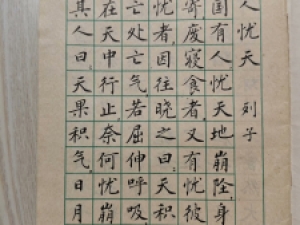 人忧天 列子
国有人忧天地崩,身
寄,废寝食者,又有忧彼
忧者,因往晓之曰:天积
亡处亡气若屈伸呼吸,
在天中行止,奈何忧崩
其人曰,天果积气,日月